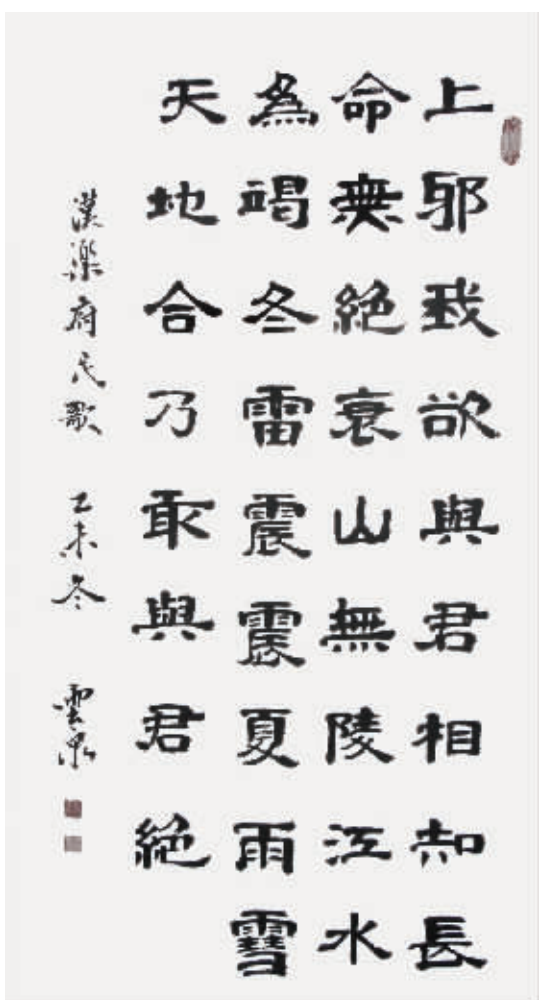 上邪我欲與君相知長
命無絕衰山無陵江水
為竭冬雷震震夏雨雪
天地合乃敢與君絕
漢樂府民歌 乙未冬 雲泉